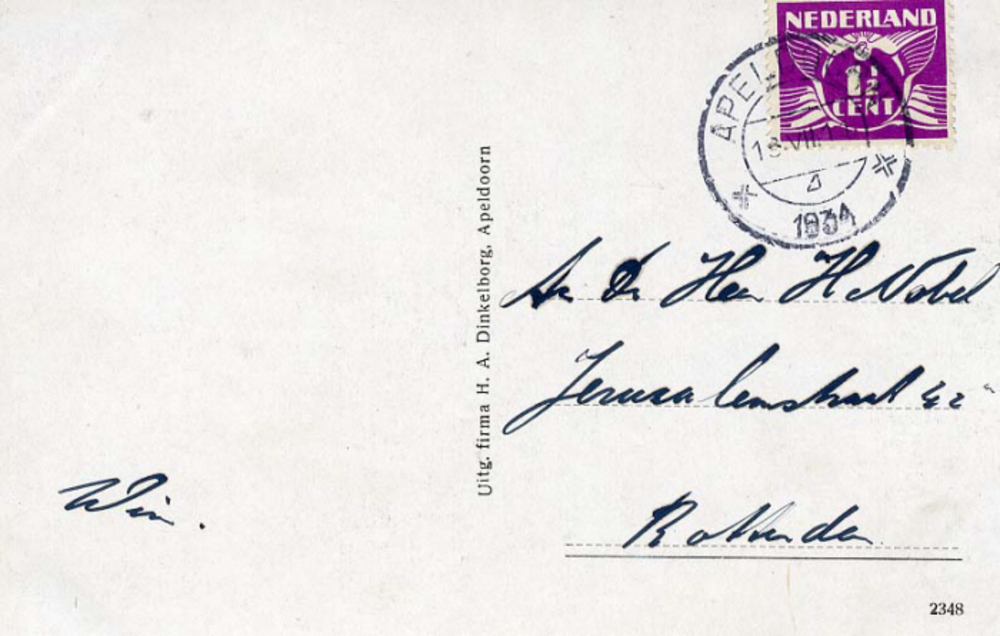 NEDERLAND
1½
CENT
APELDOORN
18.VII.1
1934
Uitg. firma H. A. Dinkelborg, Apeldoorn
An De Heer H Nobel
Jerusalemstraat 42
Rotterdam
Wim.
2348